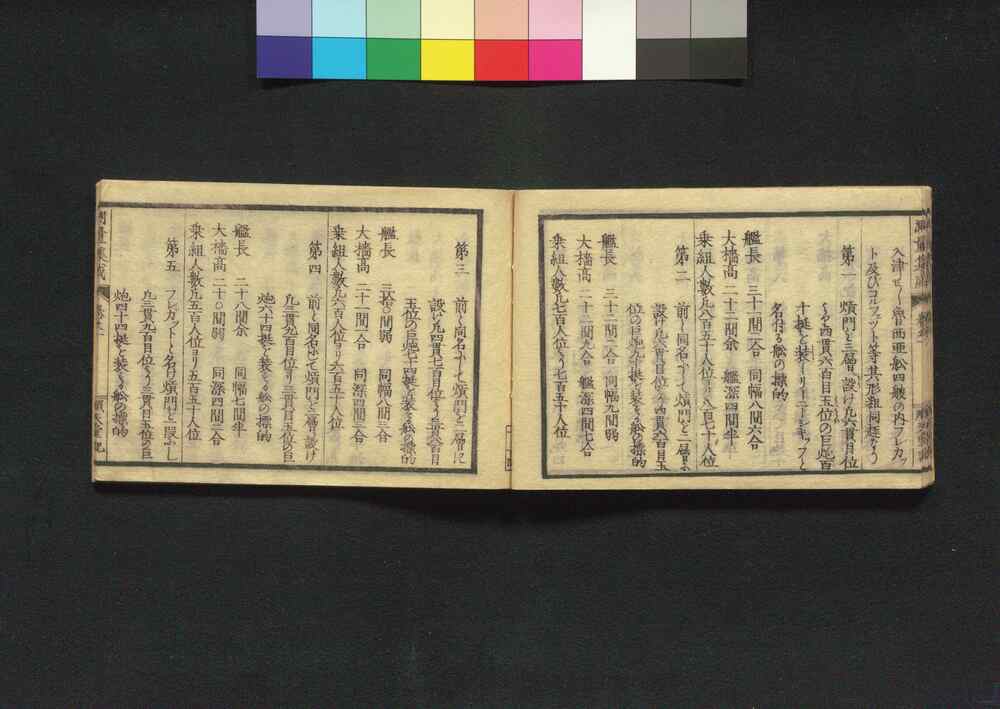 入津セし魯西亜舩四艘の内フレカッ
ト及びコルフェット等其形粗同じ
第一 熕門を三層に設け凡六貫目位
より四貫六百目玉位の巨炮百
十挺を装
名付る舩の標的
艦長 三十二間二合 同幅八間六合
大檣高 二十二間余 艦深四間半
乗組人数凡八百五十人位より八百七十人位
第二 前と同名にて熕門を二層に
設け凡六貫目位より四貫六百目玉
位の巨炮九十挺を装る舩の標的
艦長 三十二間二合 同幅九間弱
大檣高 二十二間九合 艦深四間七合
乗組人数凡七百人位より七百五十人位
第三 前と同名にて熕門を二層に
設け凡四貫七百目位より三貫六百目
玉位の巨炮七十四挺を装る舩の標的
艦長 三拾〇間弱 同幅八間三合
大檣高 二十二間二合 同深四間三合
乗組人数凡六百人位より六百五十人位
第四 前と同名にて熕門を二層に設け
凡三貫九百目位より三貫目玉位の巨
炮六十四挺を装る舩の標的
艦長 二十八間余 同幅七間半
大檣高 二十〇間弱 同深四間三合
乗組人数凡五百人位ヨリ五百五十人位
第五 フレカットと名け熕門を一段にし
凡三貫九百目位より三貫目玉位の巨
炮四十四挺を装る舩の標的